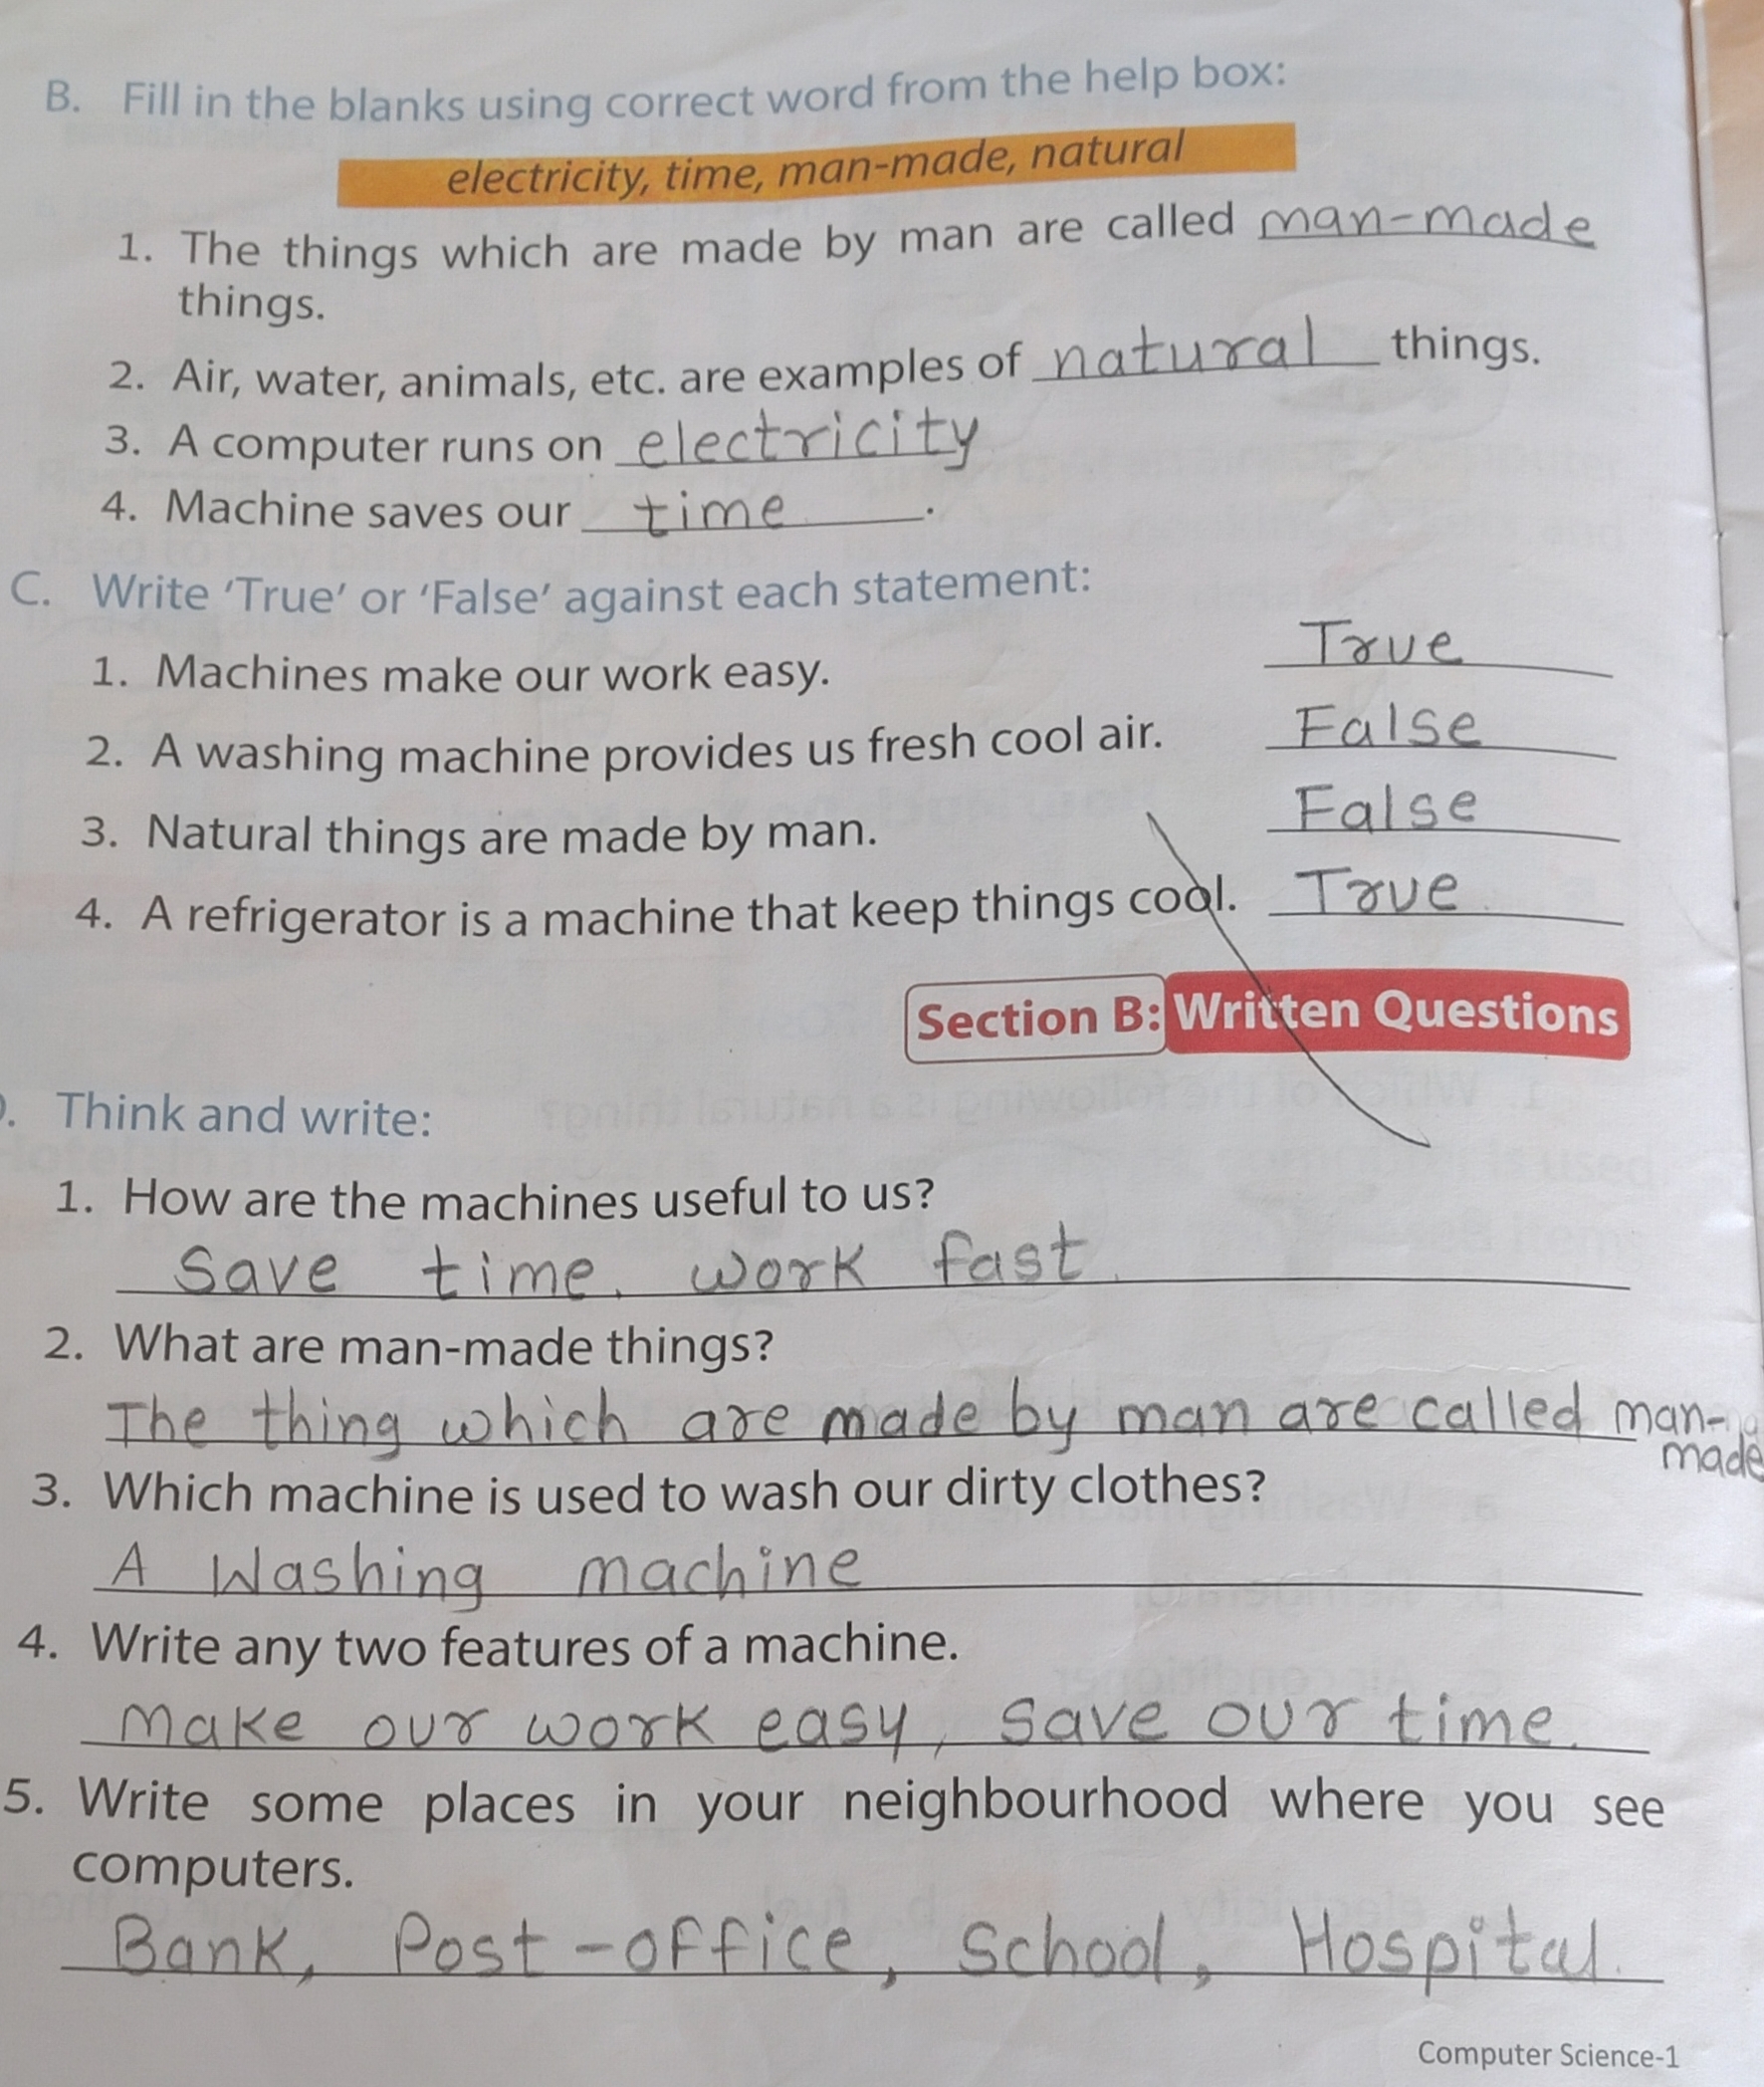 B. Fill in the blanks using correct word from the help box:
electricity, time, man-made, natural
1. The things which are made by man are called man-made
things.
2. Air, water, animals, etc. are examples of natural things.
3. A computer runs on electricity
4. Machine saves our time.
C. Write 'True' or 'False' against each statement:
1. Machines make our work easy. True
2. A washing machine provides us fresh cool air. False
3. Natural things are made by man. False
4. A refrigerator is a machine that keep things cool. True
Section B: Written Questions
. Think and write:
1. How are the machines useful to us?
Save time. work fast.
2. What are man-made things?
The thing which are made by man are called man-
made
3. Which machine is used to wash our dirty clothes?
A Washing machine
4. Write any two features of a machine.
Make our work easy, save our time.
5. Write some places in your neighbourhood where you see
computers.
Bank, Post-office, School, Hospital.
Computer Science-1